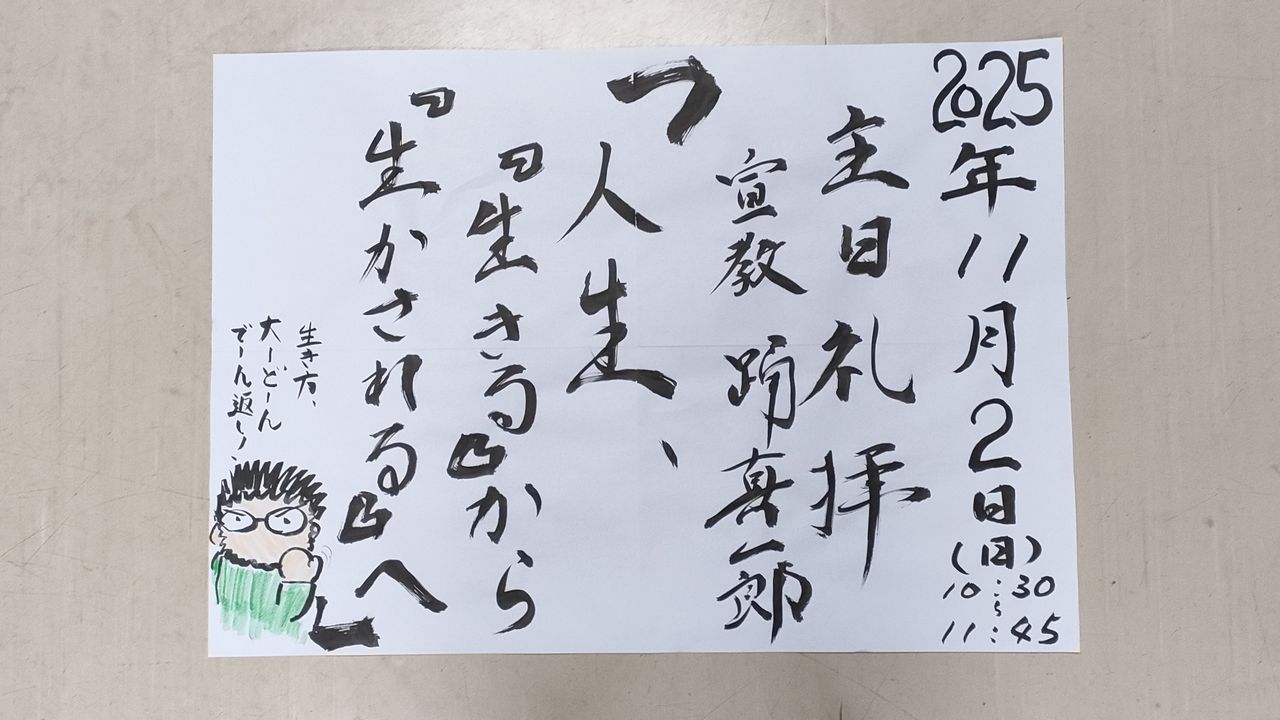 2025年11月2日(日)
10:30
〜
11:45
主日礼拝
宣教 踊真一郎
「人生、
『生きる』から
『生かされる』へ」
生き方、
大ーどーん
でーん返し!